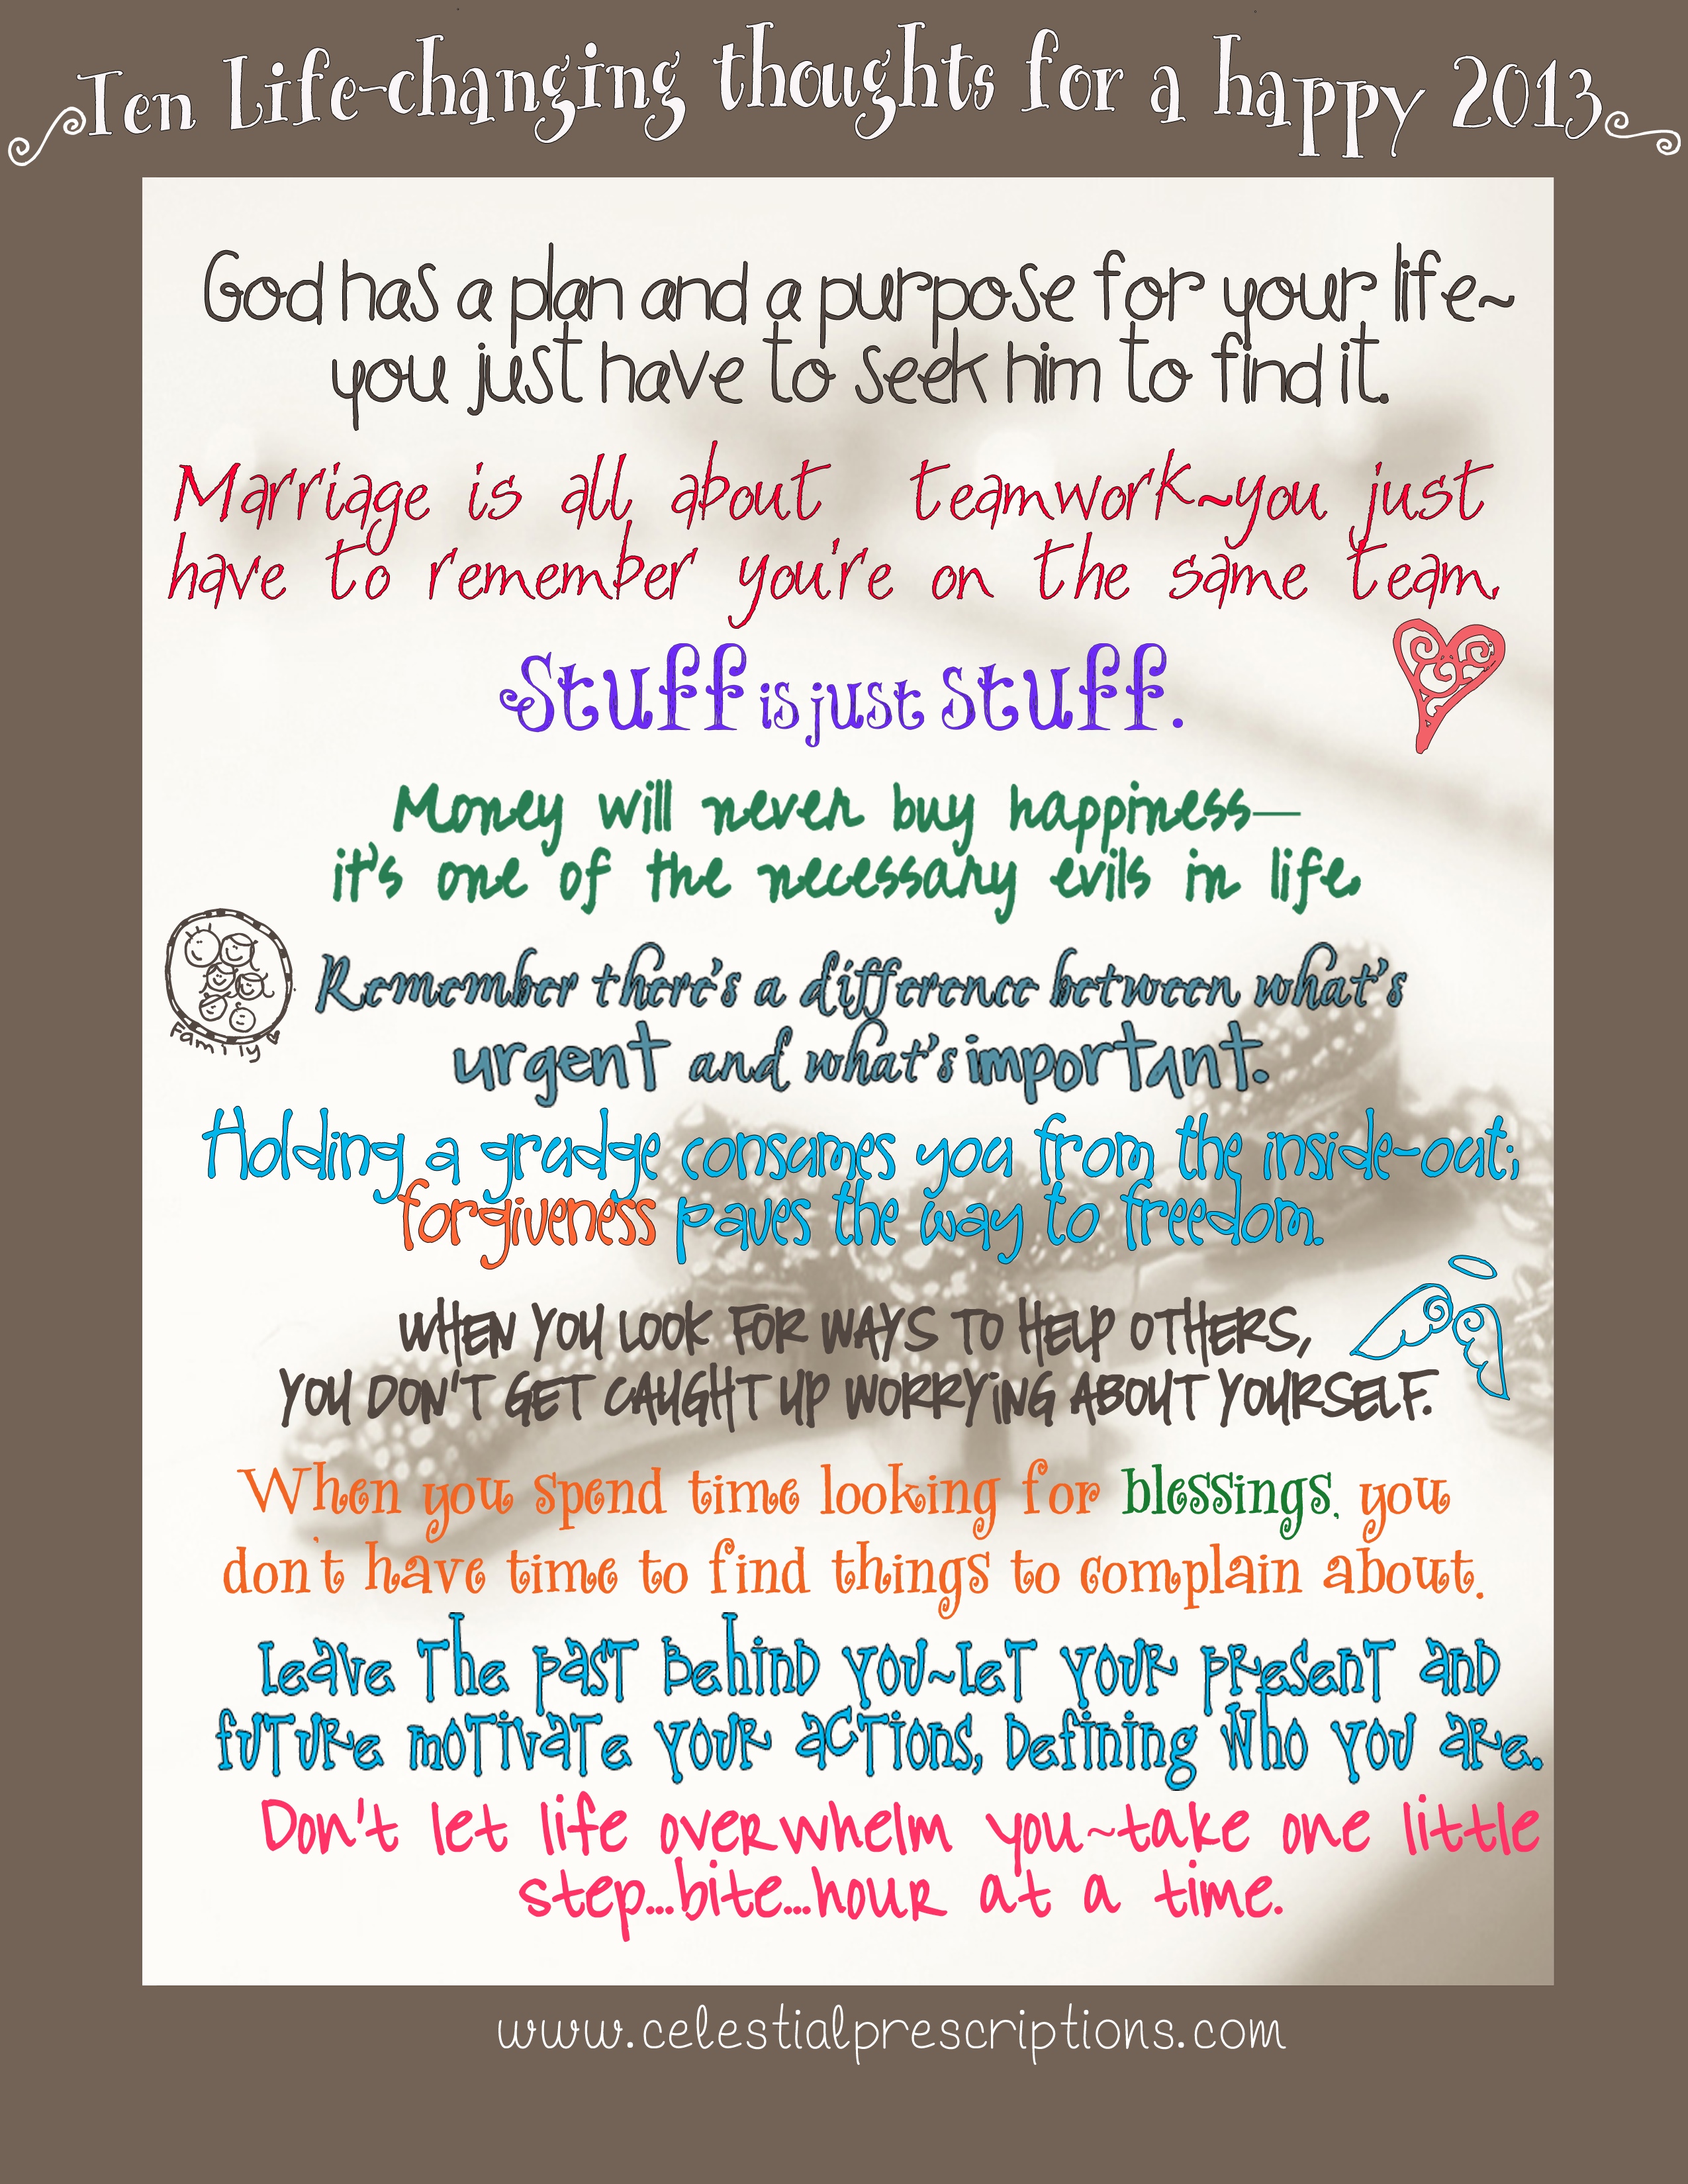 Ten Life-changing thoughts for a happy 2013
God has a plan and a purpose for your life~
you just have to seek him to find it.
Marriage is all about teamwork~you just
have to remember you're on the same team.
Stuff is just stuff.
Money will never buy happiness—
it's one of the necessary evils in life.
family
Remember there's a difference between what's
urgent and what's important.
Holding a grudge consumes you from the inside-out;
forgiveness paves the way to freedom.
WHEN YOU LOOK FOR WAYS TO HELP OTHERS,
YOU DON'T GET CAUGHT UP WORRYING ABOUT YOURSELF.
When you spend time looking for blessings, you
don't have time to find things to complain about.
Leave the past behind you~let your present and
future motivate your actions, defining who you are.
Don't let life overwhelm you~take one little
step...bite...hour at a time.
www.celestialprescriptions.com